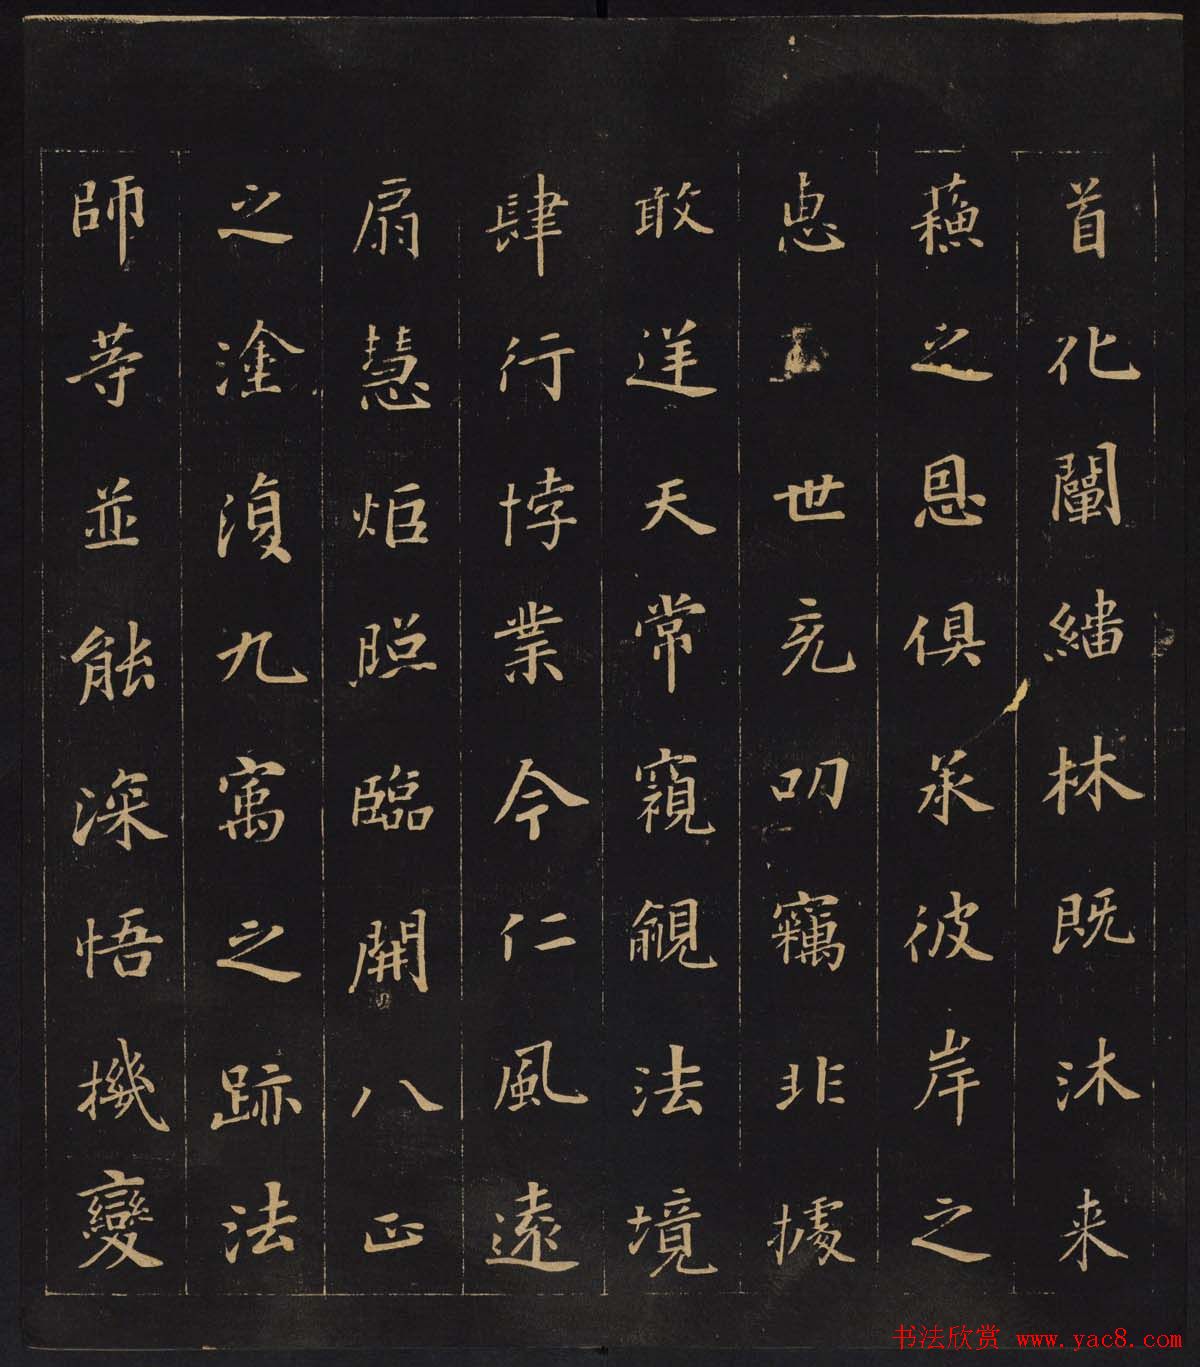 首化闡緇林既沐来
蘓之恩俱承彼岸之
恵世充叨竊非據
敢逆天常窺覦法境
肆行悖業今仁風遠
扇慧炬照臨開八正
之塗復九寓之跡法
師等並能深悟機變
书法欣赏 www.yac8.com